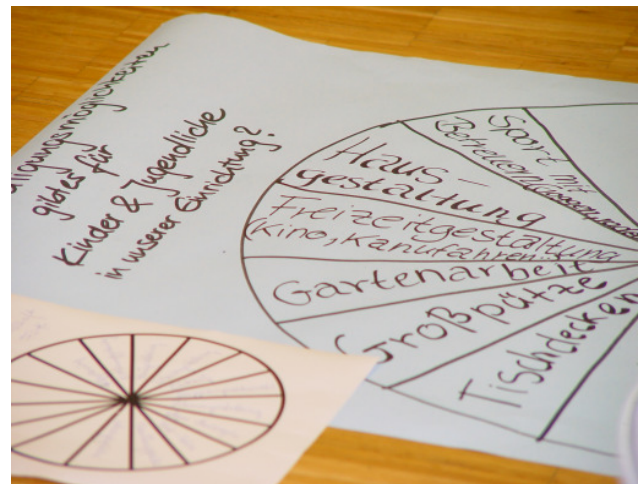 gibt es für
Kinder & Jugendliche
in unserer Einrichtung?
Sport mit
Betreuern
Haus-
gestaltung
Freizeitgestaltung
(Kino, Kanufahren
Gartenarbeit
Großpütze
Tischdecken